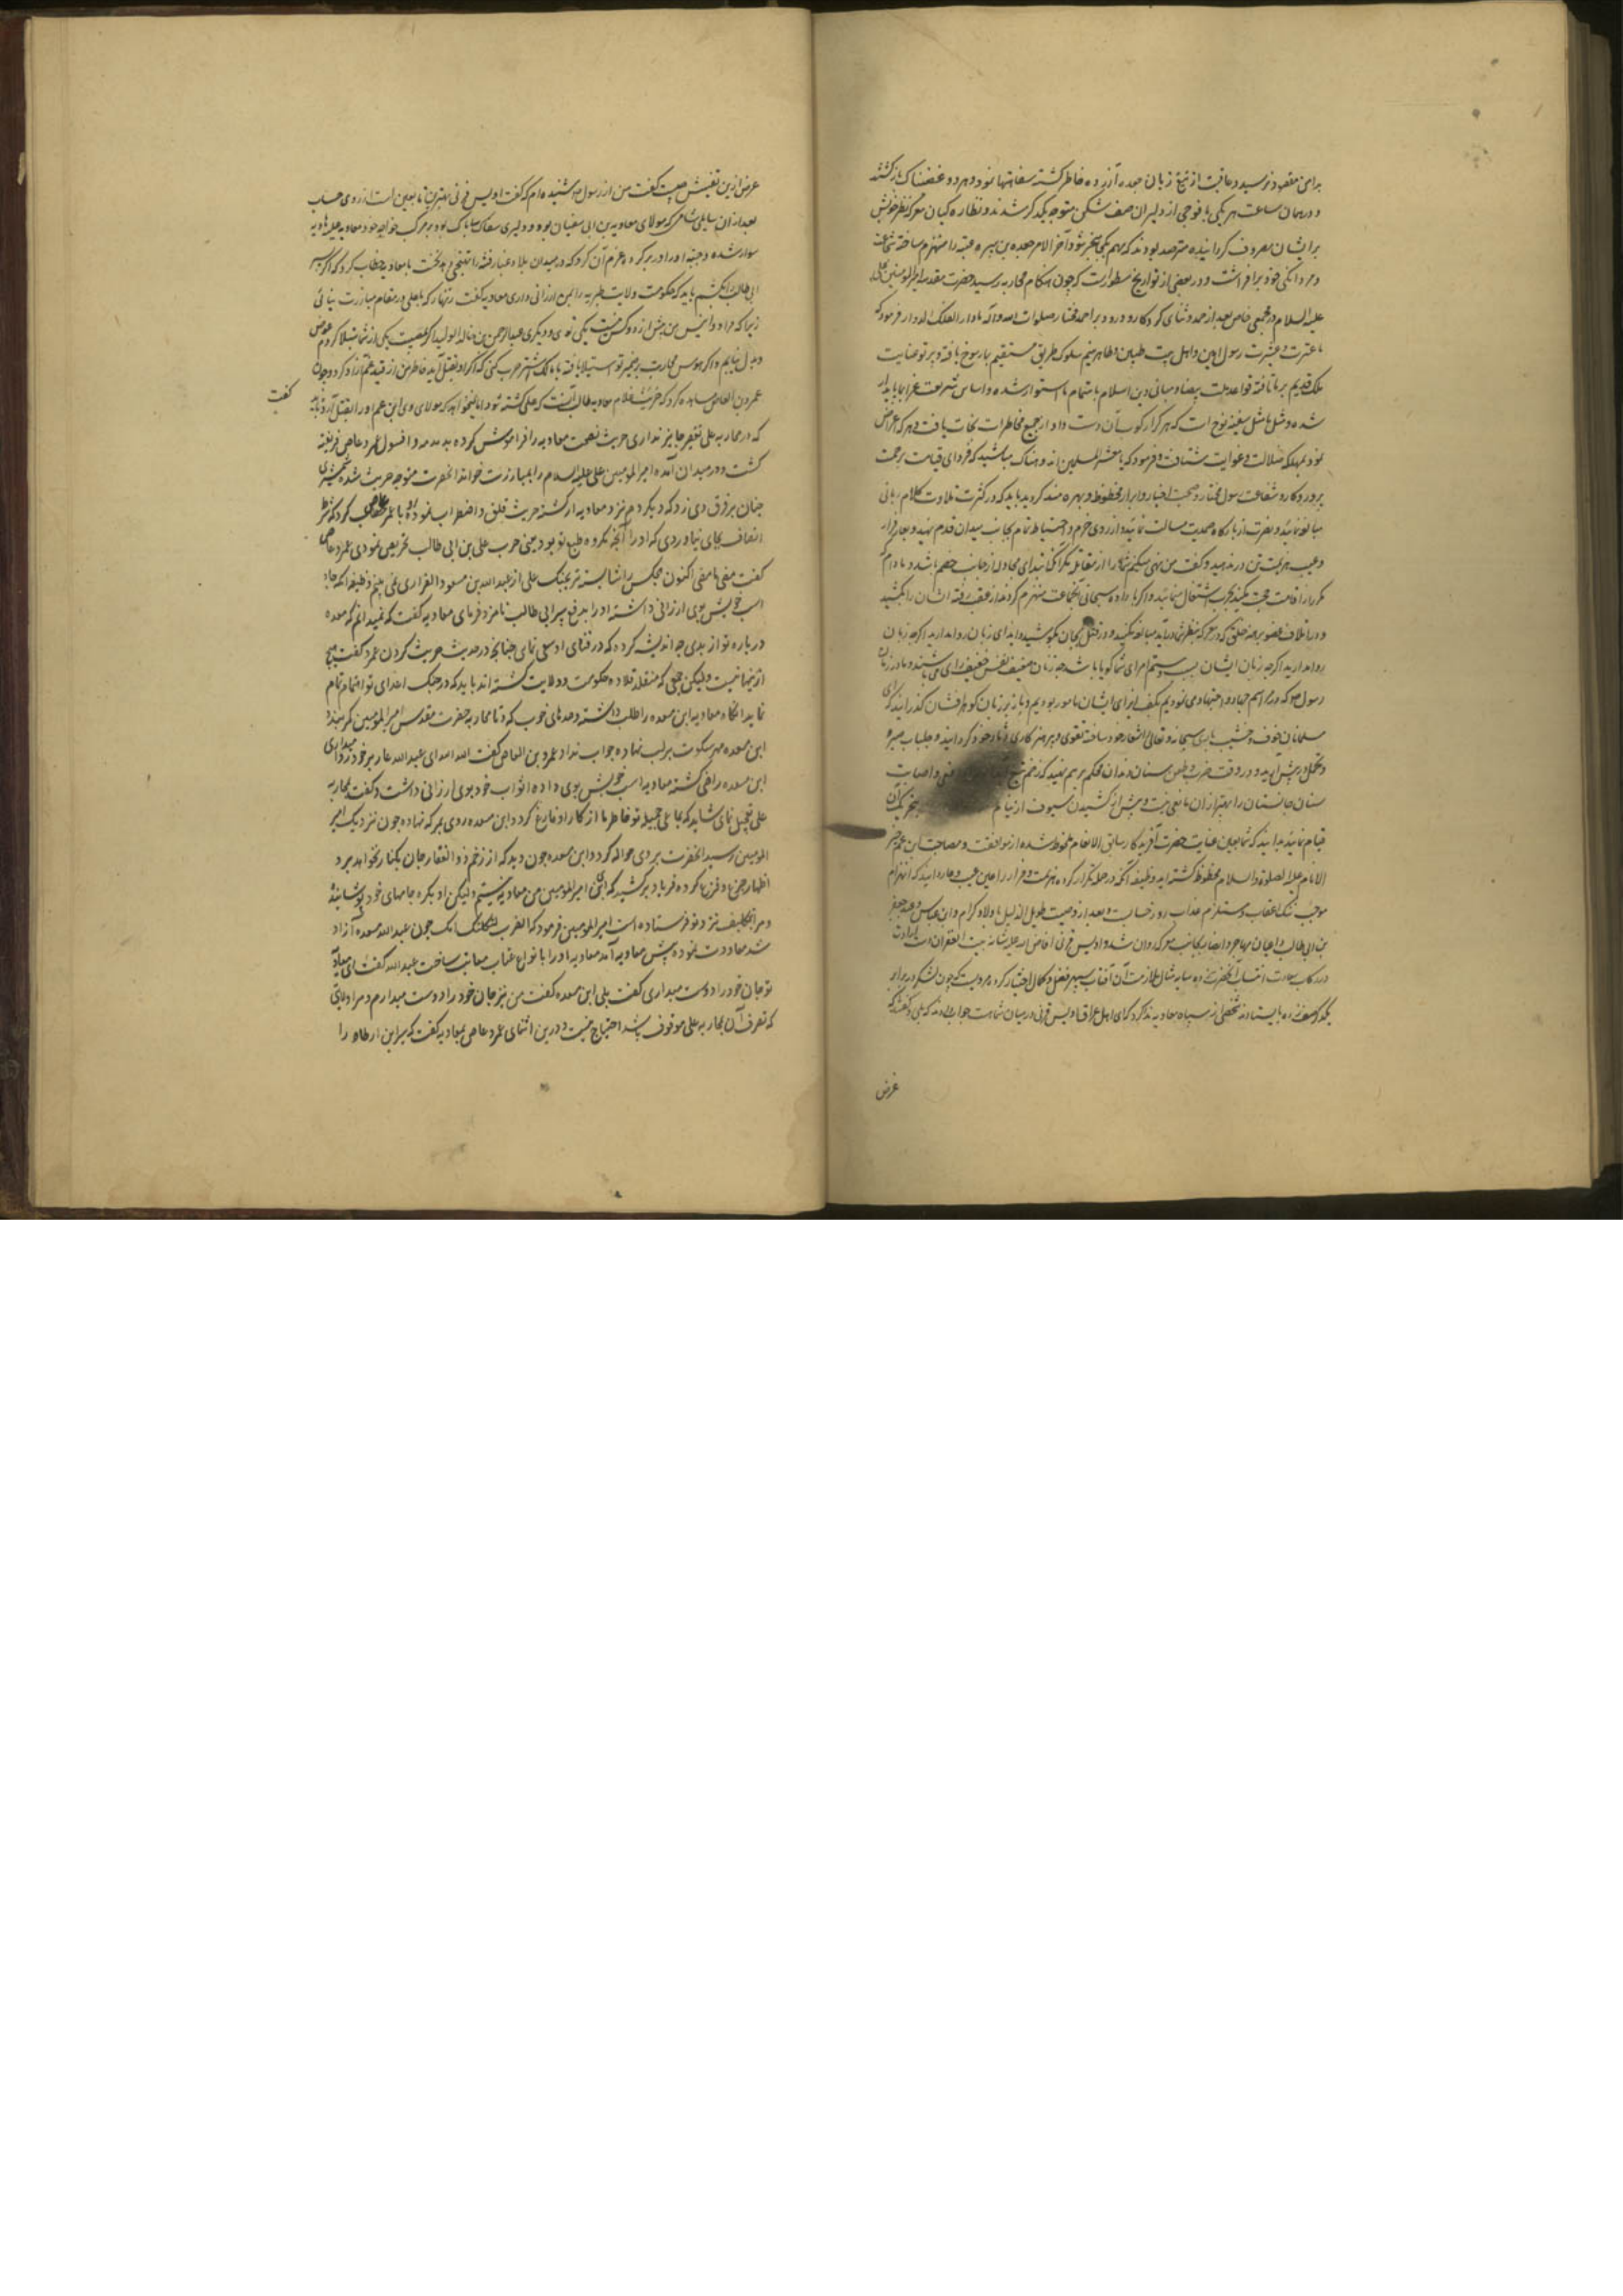 برامی مقصود نرسید و عاقبت از تیغ زبان جعده آزرده خاطر کشته سفاهتها نمود و هر دو غضبناک باز کشتند
و در همان ساعت هر یکی با فوجی از دلیران صف شکن متوجه یکدکر شدند و نظاره کیان معرکه نظر خویش
بر ایشان مصروف کردانیده مترصد بودند که مهم بکجا منجر شود آخر الامر جعده بن هبیره عتبه را منهزم ساخته
و مردانکی خود برافراشت و در بعضی از تواریخ مسطورست که چون هنکام محاربه رسید حضرت مقدسه امیرالمومنین علی
علیه السلام در مجمعی خاص بعد از حمد و ثنای کردکار و درود بر احمد مختار صلوات الله و آله مادار الفلک الدوار فرمود که
ما عترت و عشیرت رسول امین و اهل بیت طیبین و طاهرینیم سلوک طریق مستقیم بما رسوخ یافته و پرتو عنایت
ملک قدیم بر ما تافته قواعد ملت بیضا و مبانی دین اسلام باهتمام ما استوار شده و اساس شریعت غرا بما پایدار
شده و مثل ما مثل سفینه نوح است که هر که رکوب آن دست داد از جمیع مخاطرات نجات یافت و هر که اعراض
نمود بمهلکه ضلالت و غوایت شتافت و فرمود که یا معشر المسلمین اندوهناک مباشید که فردای قیامت برحمت
پروردکار و شفاعت رسول مختار و صحبت اخیار و ابرار محظوظ و بهره مند کردید باید که در کثرت تلاوت کلام ربانی
مبالغه نمایید و نصرت از بارکاه صمدیت مسالت نمایید و از روی حزم و احتیاط تمام بجانب میدان قدم نهید و بعار فرار
و عیب هزیمت تن در ندهید و کفت من نهی میکنم شما را از مقاتله مکر آنکه ابتدای مجادله از جانب خصم باشد و مادام
مکررا اقامت حجت نکنید بحرب اشتغال ننمایید و اکر باراده سبحانی آنجماعت منهزم کردند از عقب رفته ایشان را نکشید
روا ندارید اکرچه زبان ایشان بسب و شتم امرای شما کویا باشد چه زنان ضعیف نفس خفیف رای می باشند و ما در زمان
رسول صلم که در مراسم جهاد و اجتهاد می نمودیم بکف ایذای ایشان مامور بودیم
مسلمانان خوف و خشیت باری سبحانه و تعالی را شعار خود ساخته تقوی و پرهیزکاری را دثار خود کردانیده جلباب صبر
و تحمل در پیش آرید و در وقت ضرب و طعن سنان دندان محکم بر هم نهید که زخم تیغ
سنان جانستان را بهتر از آن مانعی نیست و پیش از کشیدن سیوف از نیام
قیام نمایید بدانید که شما بعین عنایت حضرت آفریدکار سابق الانعام ملحوظ شده از موافقت و مصاحبت ابن عم خیر
الانام علیه الصلوة والسلام محظوظ کشته اید وظیفه آنکه در حمله تکرار کرده هزیمت و فرار را عین عیب و عار دانید که انهزام
موجب ننک اعقاب و مستلزم عذاب روز حسابست و بعد از وصیت طویل الذیل با اولاد کرام و ابن عباس و عبد الله جعفر
بن ابی طالب و اعیان مهاجر و انصار بجانب معرکه روان شد و اویس قرنی
در رکاب سعادت انتساب آنحضرت بوده سایه مثال ملازمت آن آفتاب سپهر فضل و کمال اختیار کرد مرویست که چون لشکر در برابر
یکدکر صف زده بایستادند شخصی از سپاه معاویه ندا کرد که ای اهل عراق اویس قرنی در میان شما هست جواب دادند که بلی و کفتند که
غرض
غرض ازین تفتیش چیست کفت من از رسول صلم شنیده ام که کفت اویس قرنی بهترین تابعین است از روی حساب
بعد از آن سایلی شامی که مولای معاویه بن ابی سفیان بود و دلیری سفاک بیباک بود بر مرکب خواجه خود معاویه
سوار شده و جبه او را در بر کرد و عزم آن کرد که در میدان بلا غبار فتنه را تهییج دهد کفت با معاویه خطاب کرد که اکر پسر
ابی طالب را بکشم باید که حکومت ولایت طبریه را بمن ارزانی داری معاویه کفت زنهار که با علی در مقام مبارزت نیائی
زیرا که مرا دو انیس پیش از دو کس نیست یکی توی و دیکری عبدالرحمن بن خالد الولید اکر بمصیبت یکی از شما مبتلا کردم عوض
و بدل نیابم و اکر هوس محاربت بر ضمیر تو استیلا یافته با مالک اشتر حرب کنی که اکر او بقتل آید خاطر من از قید غم آزاد کردد و چون
عمرو بن العاص مشاهده کرد که حریث غلام معاویه طالب آنست که علی کشته شود
کفت
که در محاربه علی تقصیر جایز نداری حریث نصیحت معاویه را فراموش کرده بدمدمه و افسون عمرو عاص فریفته
کشت و در میدان آمده امیر المومنین علی علیه السلام را بمبارزت خواند آنحضرت متوجه حریث شده شمشیری
چنان بر فرق وی زد که دیکر دم نزد معاویه از کشته حریث قلق و اضطراب نموده با عمرو عاص عتاب کرد که شرط
انصاف بجای نیاوردی که او را آنچه مکروه طبع تو بود یعنی حرب علی بن ابی طالب تحریص نمودی عمرو عاص
کفت مضی ما مضی اکنون هیچکس را شایسته تر بجنک علی از عبدالله بن مسعود الفزاری نمی بینم وظیفه آنکه جامه
اسب خویش بوی ارزانی داشته او را بدفع پسر ابی طالب نامزد فرمای معاویه کفت که نمیدانم که مسعده
در باره تو از بدی چه اندیشه کرده که در فنای او سعی نمای چنانچه در حدیث حریث کردی عمرو کفت هیچ
ازینها نیست ولیکن جمعی که متقلد قلاده حکومت و ولایت کشته اند باید که در جنک اعدای تو اهتمام تمام
نمایند آنکاه معاویه ابن مسعده را طلب داشته وعده های خوب کرد تا محاربه حضرت مقدس امیر المومنین کمر بندد
ابن مسعده مهر سکوت بر لب نهاده جواب نداد عمرو بن العاص کفت الله الله ای عبدالله عار بر خود روا میداری
ابن مسعده راضی کشته معاویه اسب خویش بوی داده اثواب خود بوی ارزانی داشت و کفت بمحاربه
علی تعجیل نمای شاید که بمساعی جمیله تو خاطر ما از کار او فارغ کردد ابن مسعده روی بمعرکه نهاده چون نزدیک امیر
المومنین رسید آنحضرت بر وی حواله کرد و ابن مسعده چون دید که از زخم ذو الفقار جان بکنار نخواهد برد
اظهار جزع و فزع کرده فریاد برکشید که ای امیر المومنین من معاویه نیستم ولیکن او بکره جامهای خود پوشانیده
و مرا بتکلیف نزد تو فرستاده است امیر المومنین فرمود که اغرب ثکلتک امک چون عبدالله مسعده آزاد
شد معاودت نموده پیش معاویه آمد معاویه او را بانواع عتاب معاتب ساخت عبدالله کفت ای معاویه
تو جان خود را دوست میداری کفت بلی ابن مسعده کفت من نیز جان خود را دوست میدارم و مرا ولایتی
که تصرف آن بمحاربه علی موقوف باشد احتیاج نیست و درین اثنای عمرو عاص بمعاویه کفت که بسر ابن ارطاه را